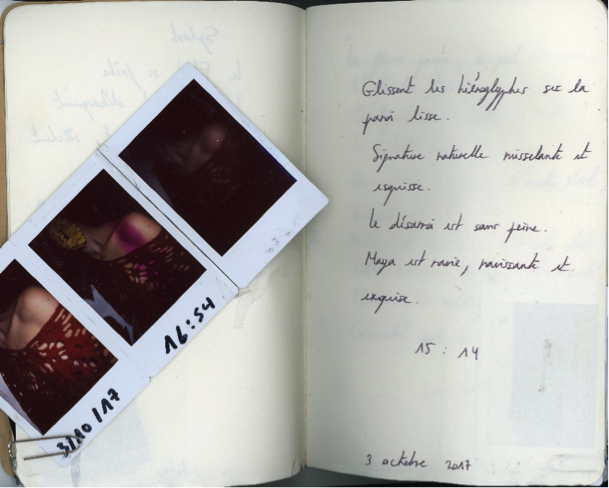 16:54
3/10/17
Glissent les hiéroglyphes sur la
paroi lisse.
Signature naturelle ruisselante et
esquisse.
Le désarroi est sans peine.
Maya est ravie, ravissante et
exquise.
15 : 14
3 octobre 2017